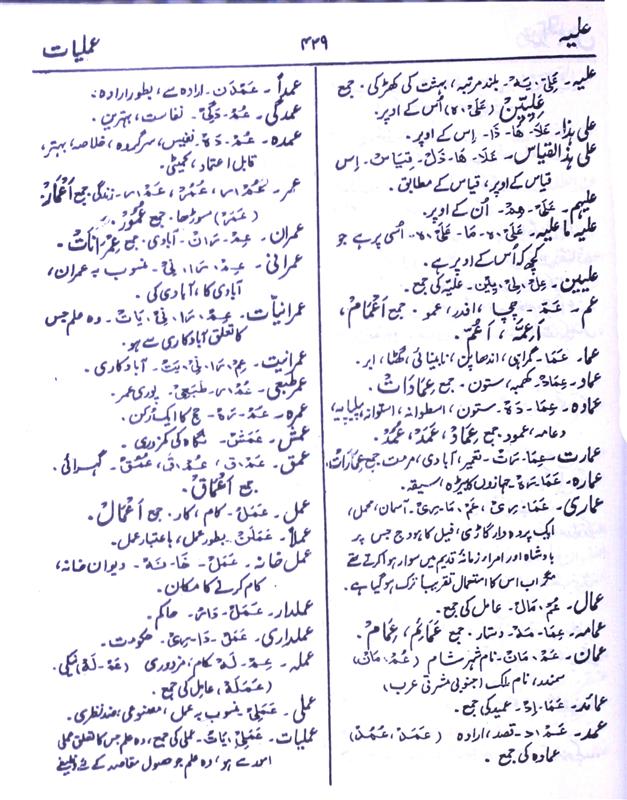 علیہ
۴۲۹
عملیات
علیہ۔ عَلِیْ۔ یَہ۔ بلند مرتبہ، بہشت کی کھڑکی۔ جمع
عِلِّیِّیْن (عَلَیْ۔ ہ) اُس کے اوپر۔
علی ہذا۔ عَلَا۔ ھَا۔ ذَا۔ اِس کے اوپر۔
علی ہذا القیاس۔ عَلَا۔ ھَا۔ ذَلْ۔ قِیَاسْ۔ اِس
قیاس کے اوپر، قیاس کے مطابق۔
علیہم۔ عَلَیْ۔ ھِمْ۔ اُن کے اوپر۔
علیہ ما علیہ۔ عَلَیْ۔ ہ۔ مَا۔ عَلَیْ۔ ہ۔ اُسی پر ہے جو
کچھ کہ اُس کے اوپر ہے۔
علیین۔ عِلْ۔ لِیْ۔ یِیْن۔ علیّہ کی جمع۔
عم۔ عَمْ۔ چچا، عمو۔ جمع اَعْمَامْ،
اَعِمَّہ، اَعُمّ۔
عما۔ عَمَا۔ گمراہی، اندھاپن، نابینائی، گھٹا، ابر۔
عماد۔ عِمَادْ۔ کھمبہ، ستون۔ جمع عِمَادَاتْ۔
عمادہ۔ عِمَا۔ دَہ۔ ستون، اسطوانہ، استوانہ، پیلپایہ،
دعامہ، عمود۔ جمع عِمَادْ، عَمَدْ، عُمُدْ۔
عمارت۔ عِمَا۔ رَتْ۔ تعمیر، آبادی، مرمت۔ جمع عِمَارَاتْ۔
عمارہ۔ عَمَا۔ رَہ۔ جہازوں کا بیڑہ،
عماری۔ عَمَا۔ رِیْ، عَمْ۔ مَا۔ رِیْ۔ آسمان، محمل،
ایک پردہ دار گاڑی، فیل کا ہودج جس پر
بادشاہ اور امراء زمانۂ قدیم میں سوار ہوا کرتے تھے
مگر اب اس کا استعمال تقریباً ترک ہو گیا ہے۔
عمال۔ عُمْ۔ مَالْ۔ عامل کی جمع۔
عمامہ۔ عِمَا۔ مَہ۔ دستار۔ جمع عَمَائِمْ، عِمَامْ۔
عمان۔ عَمْ۔ مَانْ۔ نام شہر شام (عُمْ۔ مَانْ)
سمندر، نام ملک (جنوبی مشرقی عرب)
عمائد۔ عَمَا۔ اِدْ۔ عمید کی جمع۔
عمد۔ عَمْ۔ دْ۔ قصد، ارادہ (عَمَدْ، عُمُدْ)
عمادہ کی جمع۔
عمداً۔ عَمْدَنْ۔ ارادہ سے، بطور ارادہ۔
عمدگی۔ عُمْ۔ دَگِیْ۔ نفاست، بہترین۔
عمدہ۔ عُمْ۔ دَہ۔ نفیس، سرگروہ، خلاصہ، بہتر،
قابل اعتماد، کمیٹی۔
عمر۔ عُمْر، عُمُرْ، عَمْر۔ زندگی۔ جمع اَعْمَارْ۔
(عَمَرْ) مسوڑھا۔ جمع عُمُوْرْ۔
عمران۔ عِمْ۔ رَانْ۔ آبادی۔ جمع عِمْرَانَاتْ۔
عمرانی۔ عِمْ۔ رَا۔ نِیْ۔ منسوب بہ عمران،
آبادی کا، آبادی کی۔
عمرانیات۔ عِمْ۔ رَا۔ نِیْ۔ یَاتْ۔ وہ علم جس
کا تعلق آباد کاری سے ہو۔
عمرانیت۔ عِمْ۔ رَا۔ نِیْ۔ یَتْ۔ آباد کاری۔
عمر طبعی۔ عُمْرِ۔ طَبَعِیْ۔ پوری عمر۔
عمرہ۔ عُمْ۔ رَہ۔ حج کا ایک رُکن۔
عمش۔ عَمَشْ۔ نگاہ کی کمزوری۔
عمق۔ عَمْق، عُمْق، عُمُقْ۔ گہرائی۔
جمع اَعْمَاقْ۔
عمل۔ عَمَلْ۔ کام، کار۔ جمع اَعْمَالْ۔
عملاً۔ عَمَلَنْ۔ بطور عمل، باعتبار عمل۔
عمل خانہ۔ عَمَلْ۔ خَا۔ نَہ۔ دیوان خانہ،
کام کرنے کا مکان۔
عملدار۔ عَمَلْ۔ دَارْ۔ حاکم۔
عملداری۔ عَمَلْ۔ دَا۔ رِیْ۔ حکومت۔
عملہ۔ عِمْ۔ لَہ۔ کام، مزدوری (عَمَ۔ لَہ) نیکی۔
(عَمَلَہ) عامل کی جمع۔
عملی۔ عَمَلِیْ۔ منسوب بہ عمل، مصنوعی، ضد نظری۔
عملیات۔ عَمَلِیْ۔ یَاتْ۔ عملی کی جمع، وہ علم جس کا تعلق عملی
امور سے ہو، وہ علم جو حصول مقاصد کے لئے وظیفے